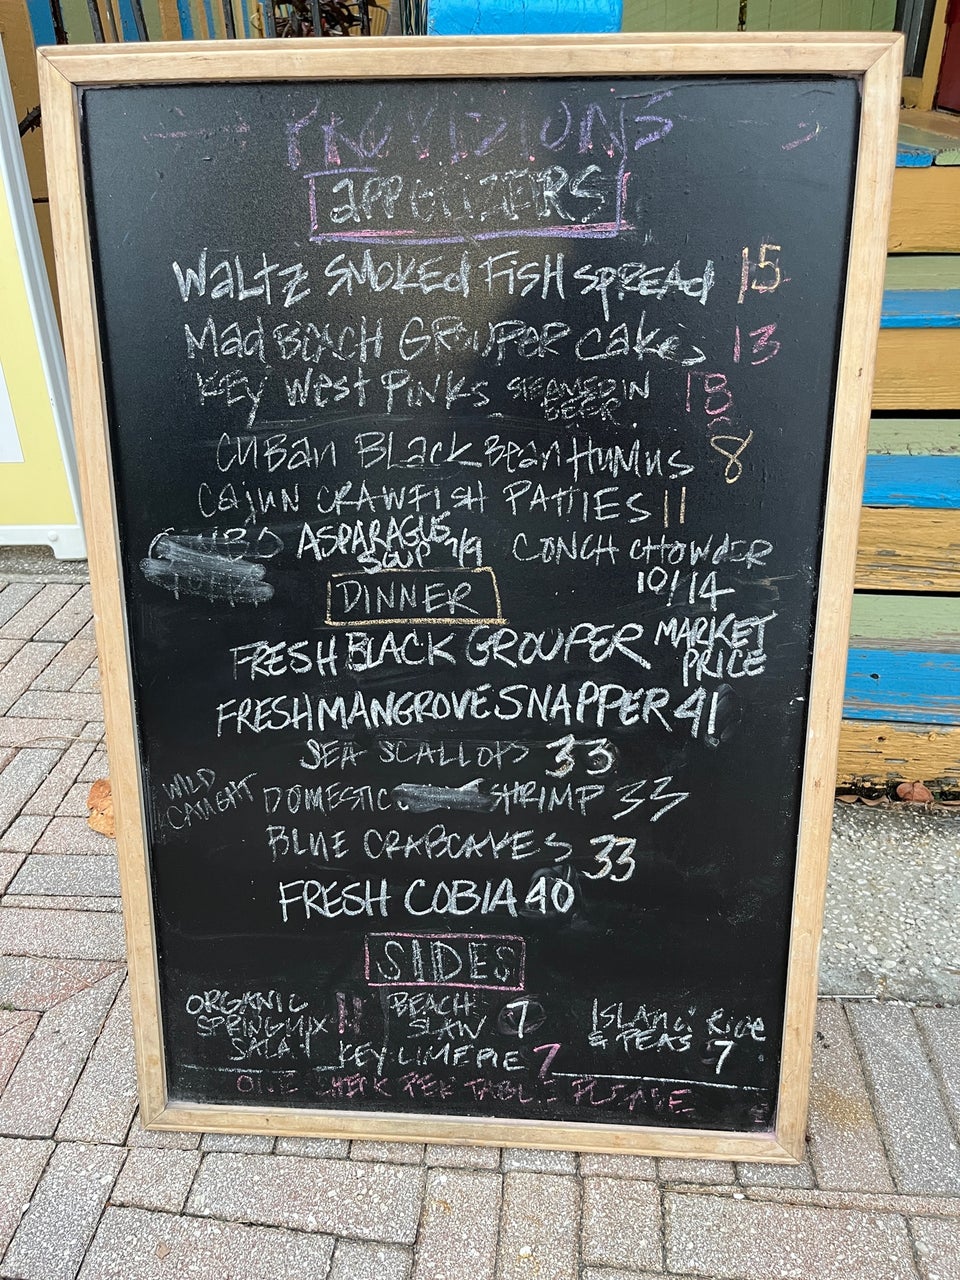 PROVISIONS
APPETIZERS
WALTZ SMOKED FISH SPREAD 15
Mad BEACH GROUPER Cakes 13
KEY West PINKS STEAMED IN BEER 18
CUBAN BLACK Bean HUMUS 8
Cajun CRAWFISH PATTIES 11
ASPARAGUS SOUP 7/9 CONCH CHOWDER 10/14
DINNER
FRESH BLACK GROUPER MARKET PRICE
FRESH MANGROVE SNAPPER 41
SEA SCALLOPS 33
WILD CAUGHT DOMESTIC SHRIMP 33
BLUE CRABCAKES 33
FRESH COBIA 40
SIDES
ORGANIC SPRINGMIX SALAD 11 BEACH SLAW 7 ISLAND Rice & PEAS 7
KEY LIME PIE 7
ONE CHECK PER TABLE PLEASE